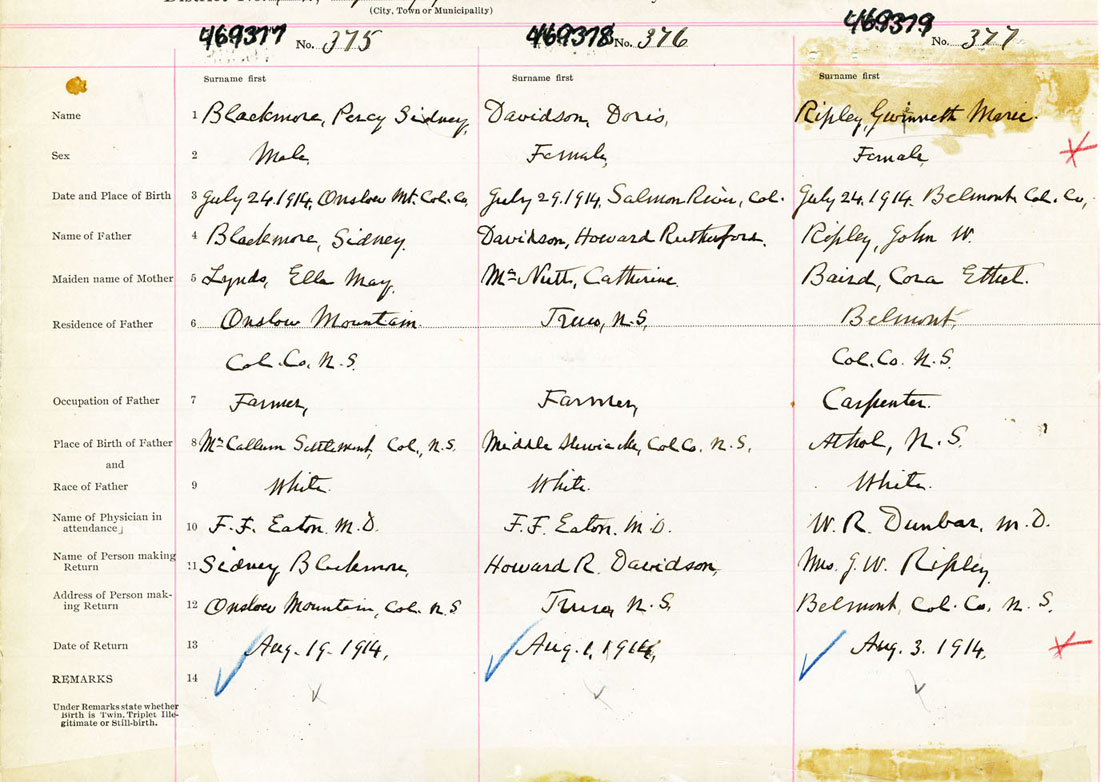 (City, Town or Municipality)
469377 No. 375 469378 No. 376 469379 No. 377
Surname first Surname first Surname first
Name 1 Blackmore, Percy Sidney, Davidson, Doris, Ripley, Gwinneth Marie.
Sex 2 Male, Female, Female,
Date and Place of Birth 3 July 24, 1914, Onslow Mt. Col. Co, July 29, 1914, Salmon River, Col. July 24, 1914. Belmont, Col. Co,
Name of Father 4 Blackmore, Sidney. Davidson, Howard Rutherford. Ripley, John W.
Maiden name of Mother 5 Lynds, Ella May, McNutt, Catherine. Baird, Cora Ethel.
Residence of Father 6 Onslow Mountain. Truro, N.S, Belmont,
Col. Co. N.S. Col. Co. N.S.
Occupation of Father 7 Farmer, Farmer, Carpenter.
Place of Birth of Father 8 McCallum Settlement, Col., N.S. Middle Stewiacke, Col Co. N.S. Athol, N.S.
and
Race of Father 9 White. White. White.
Name of Physician in
attendance 10 F. F. Eaton, M.D. F. F. Eaton, M.D. W. R. Dunbar, M.D.
Name of Person making
Return 11 Sidney Blackmore, Howard R. Davidson, Mrs. J. W. Ripley,
Address of Person mak-
ing Return 12 Onslow Mountain, Col. N.S Truro, N.S. Belmont, Col. Co. N.S.
Date of Return 13 Aug. 19. 1914, Aug. 1, 1914, Aug. 3. 1914,
REMARKS 14
Under Remarks state whether
Birth is Twin, Triplet Ille-
gitimate or Still-birth.